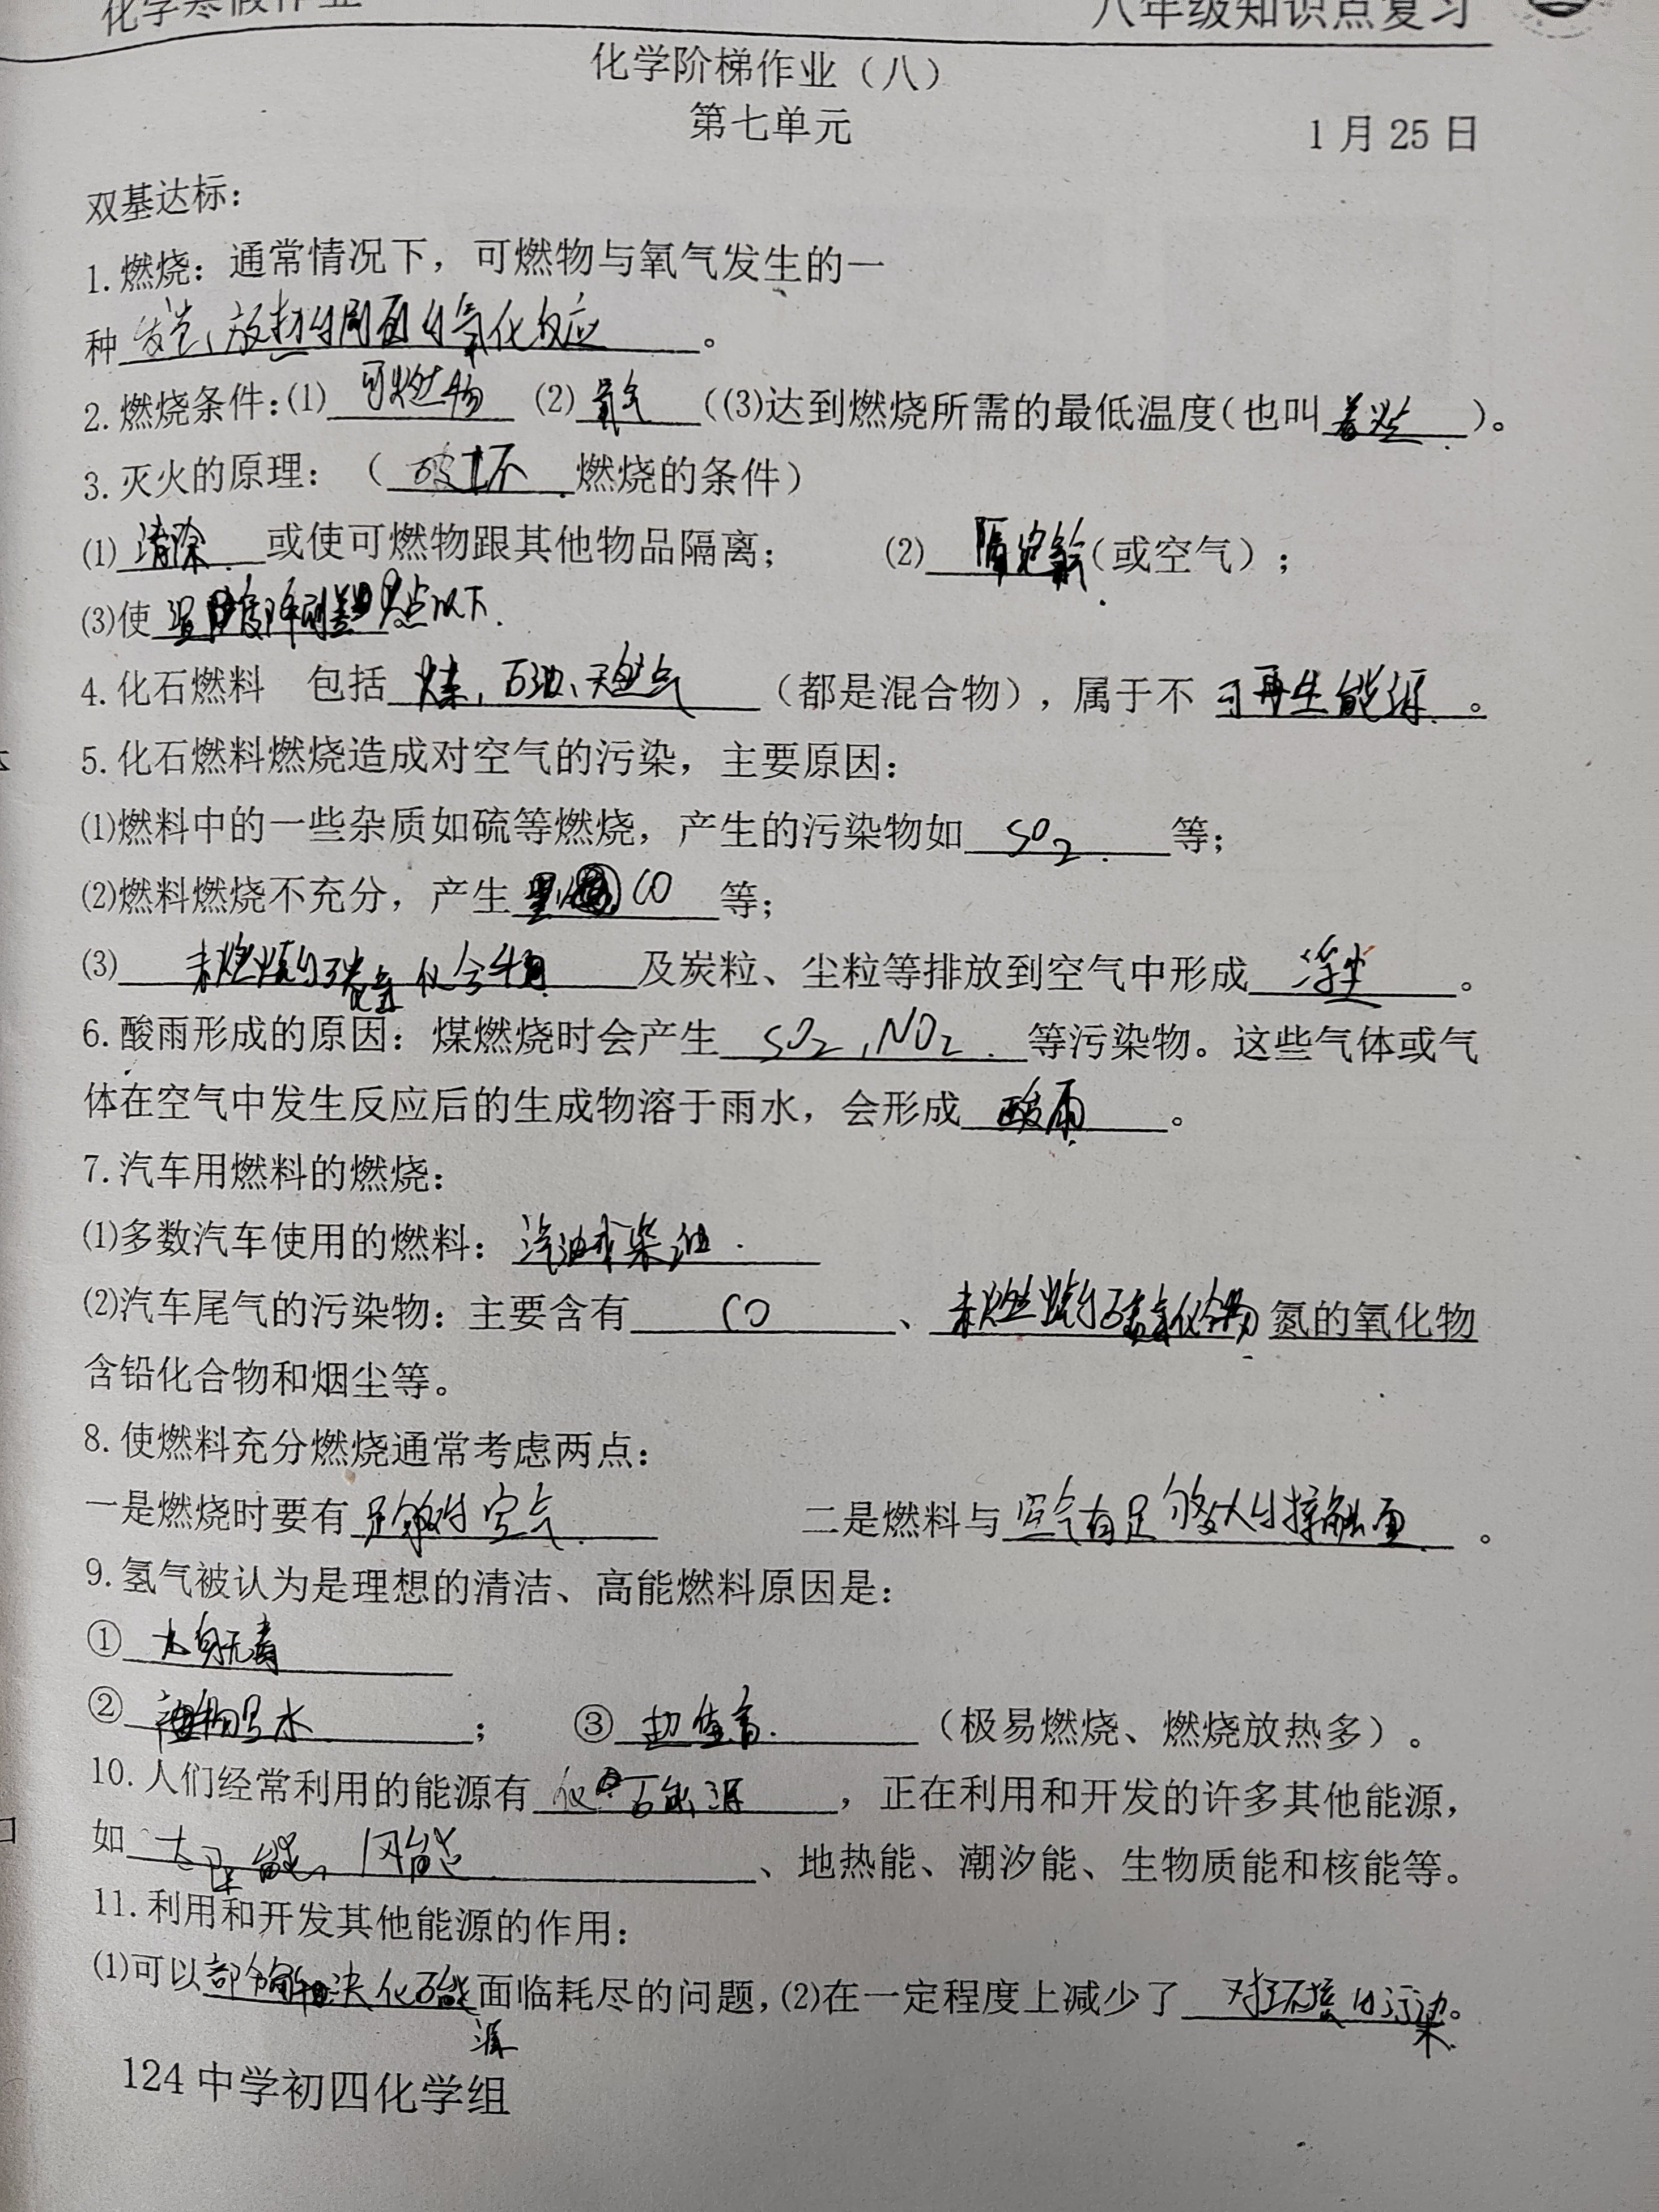 化学寒假作业 八年级知识点复习
化学阶梯作业（八）
第七单元
1月25日
双基达标：
1.燃烧：通常情况下，可燃物与氧气发生的一
种发光、放热的剧烈的氧化反应。
2.燃烧条件：(1)可燃物 (2)氧气 ((3)达到燃烧所需的最低温度(也叫着火点)。
3.灭火的原理：（破坏燃烧的条件）
(1)清除或使可燃物跟其他物品隔离； (2)隔绝氧气(或空气)；
(3)使温度降到着火点以下.
4.化石燃料 包括煤、石油、天然气（都是混合物），属于不可再生能源。
5.化石燃料燃烧造成对空气的污染，主要原因：
(1)燃料中的一些杂质如硫等燃烧，产生的污染物如SO2.等；
(2)燃料燃烧不充分，产生CO等；
(3)未燃烧的碳氢化合物及炭粒、尘粒等排放到空气中形成浮尘。
6.酸雨形成的原因：煤燃烧时会产生SO2,NO2.等污染物。这些气体或气
体在空气中发生反应后的生成物溶于雨水，会形成酸雨。
7.汽车用燃料的燃烧：
(1)多数汽车使用的燃料：汽油或柴油.
(2)汽车尾气的污染物：主要含有CO、未燃烧的碳氢化合物 氮的氧化物
含铅化合物和烟尘等。
8.使燃料充分燃烧通常考虑两点：
一是燃烧时要有足够的空气. 二是燃料与空气有足够大的接触面。
9.氢气被认为是理想的清洁、高能燃料原因是：
①本身无毒
②产物只是水； ③热值高.（极易燃烧、燃烧放热多）。
10.人们经常利用的能源有化石能源，正在利用和开发的许多其他能源，
如太阳能、风能、地热能、潮汐能、生物质能和核能等。
11.利用和开发其他能源的作用：
(1)可以部分解决化石能源面临耗尽的问题，(2)在一定程度上减少了对环境的污染。
124中学初四化学组